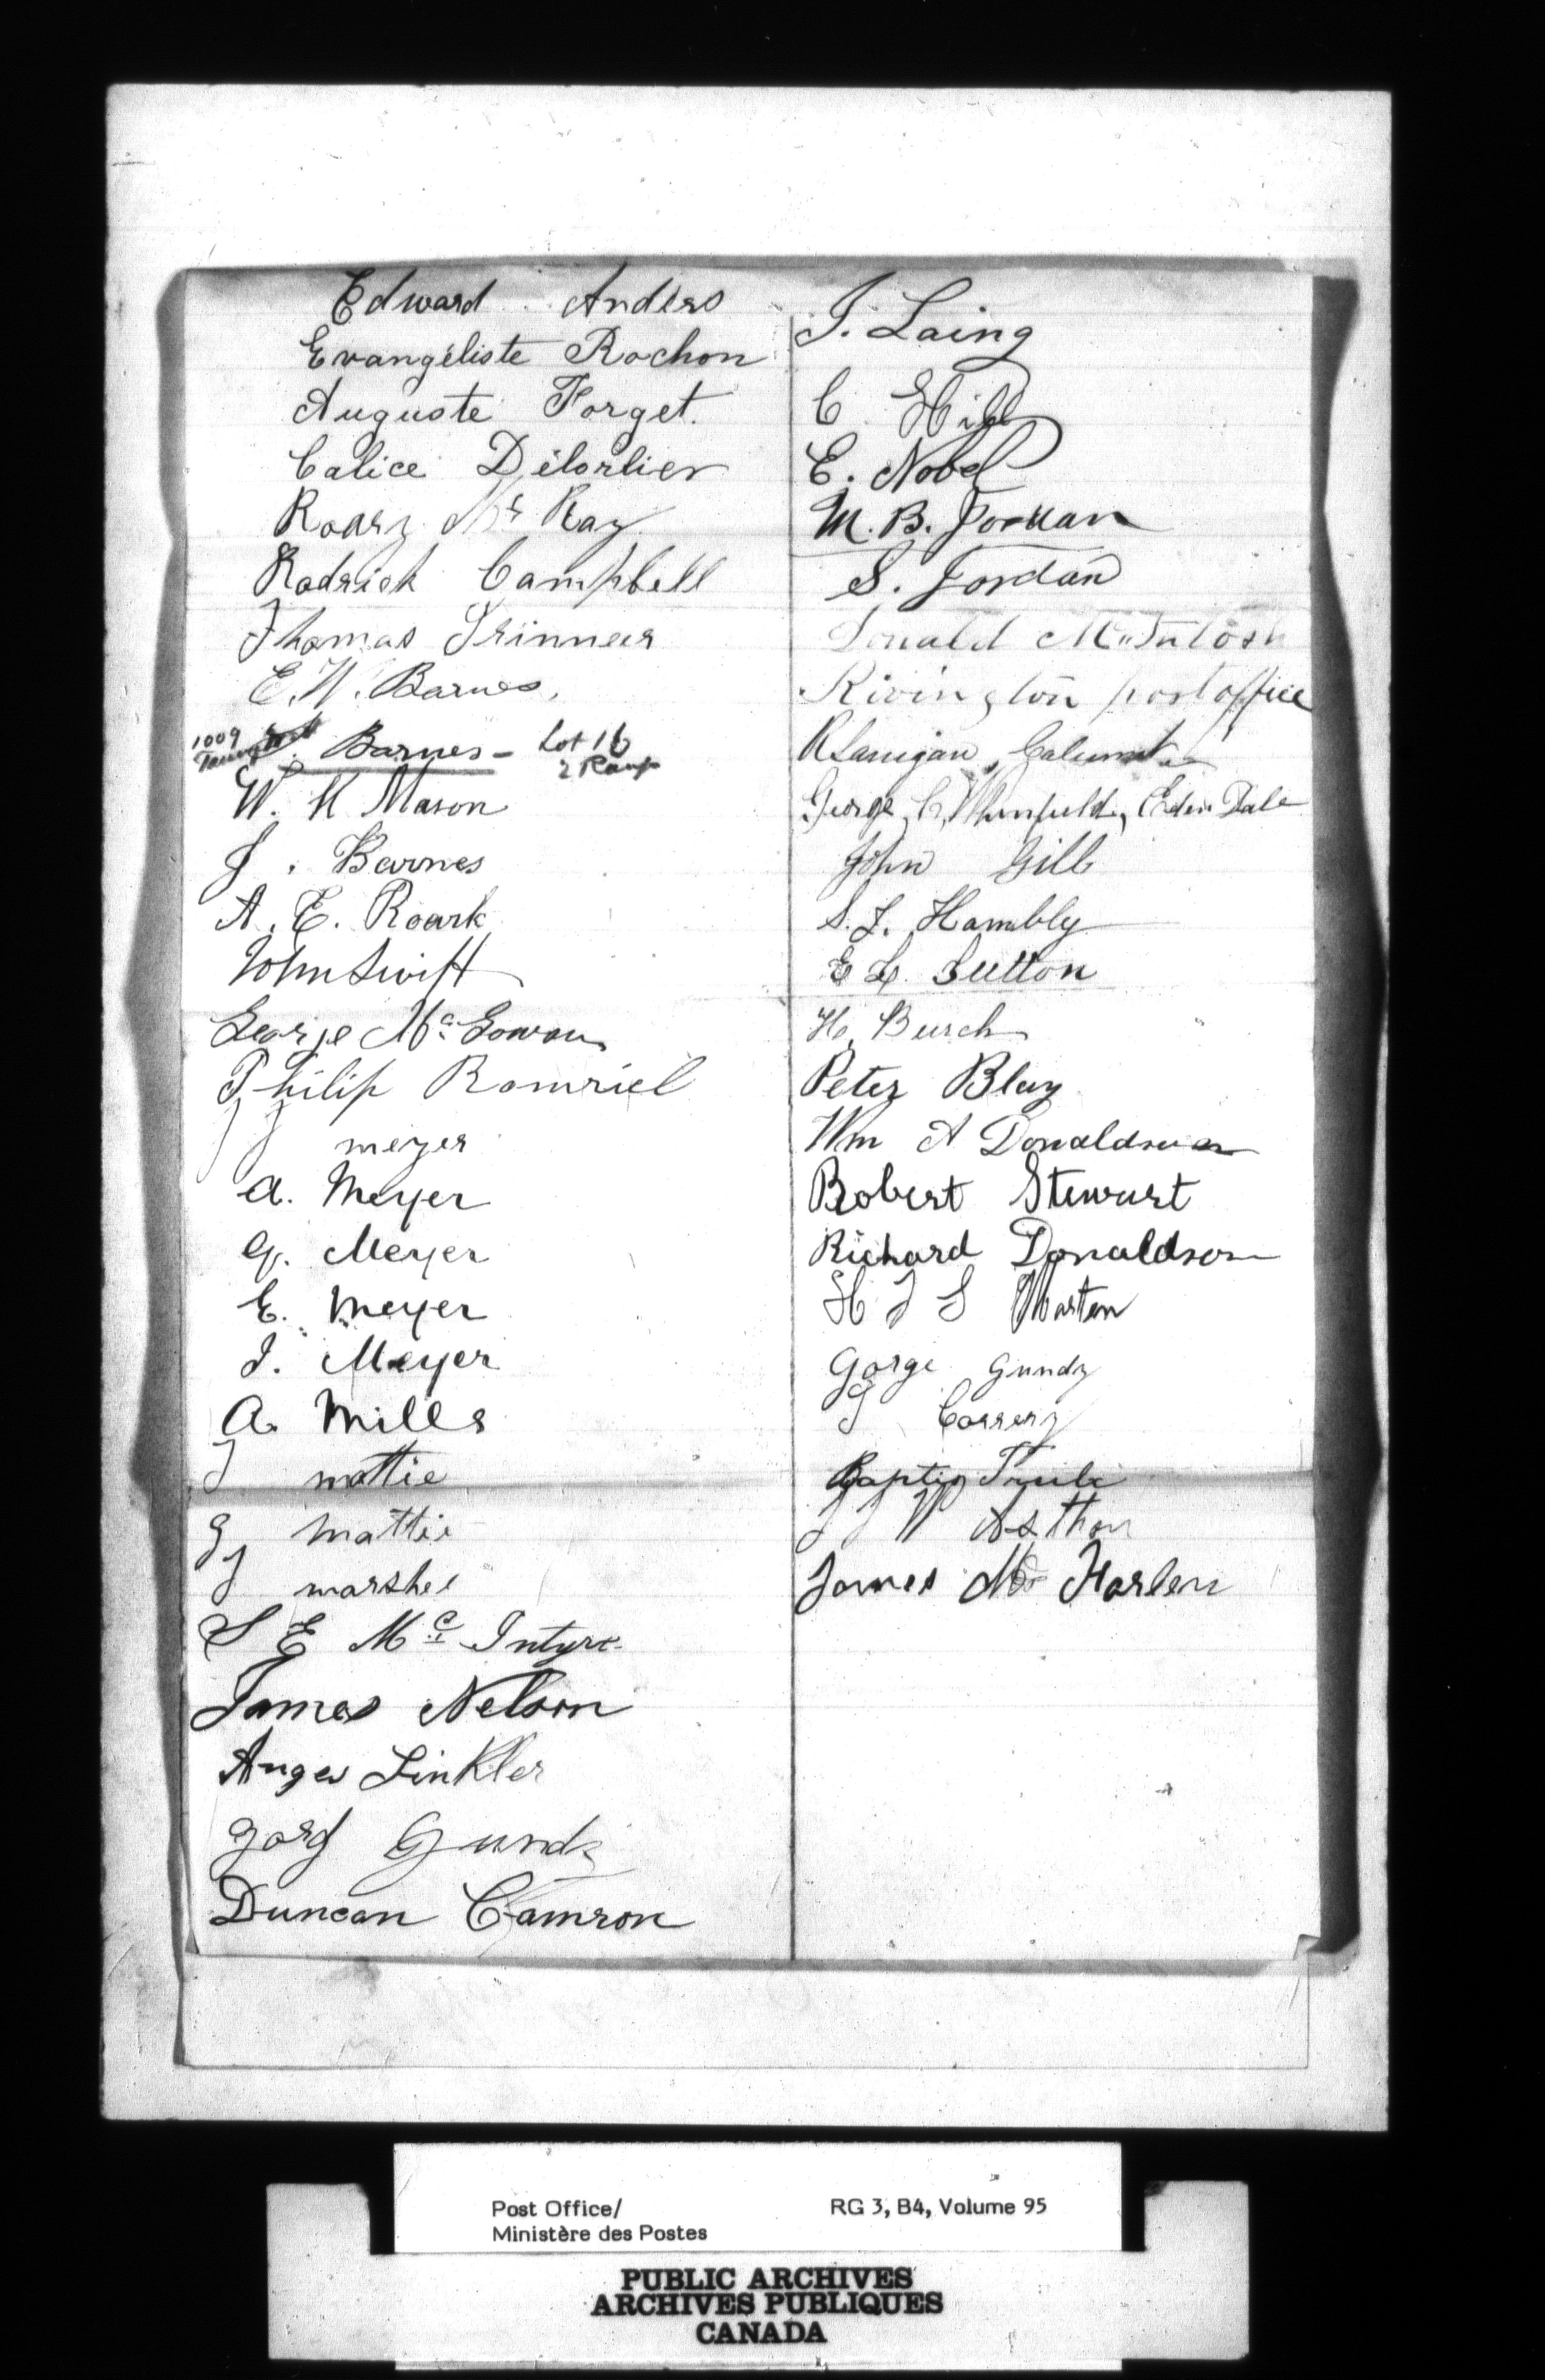 Edward Anders
Evangéliste Rochon
Auguste Forget.
Calice Délorlier
Roary Mc Ray
Rodrick Campbell
Thomas Srinner
E. W. Barnes,
1009
Barnes - Lot 16
2 Range
W. K Mason
J. Barnes
A. E. Roark
John Swift
George Mc Gowan
Philip Romriel
J J meyer
A. Meyer
G. Meyer
E. Meyer
J. Meyer
A. Mills
J mattie
G mattie
J marshel
S E Mc Intyre
James Nelson
Anges Linkler
Gorg Gundy
Duncan Camron
J. Laing
C Hill
E. Nobel
M. B. Jordan
S. Jordan
Donald McIntosh
Rivington post office
R Lanigan, Calumet
George C. Whinfield, Eden Dale
John Gill
S. J. Hambly
E L. Sutton
H. Burch
Peter Blay
Wm A Donaldson
Robert Stewart
Richard Donaldson
H J S Marten
Gorge Gundy
J Correry
Baptis
J J Asthon
James Mc Farlen
Post Office/ RG 3, B4, Volume 95
Ministère des Postes
PUBLIC ARCHIVES
ARCHIVES PUBLIQUES
CANADA